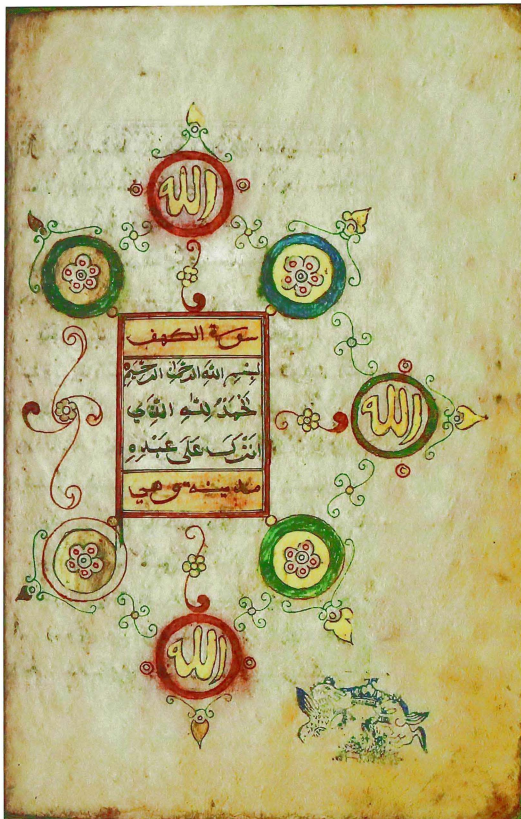 الله
سورة الكهف
بسم الله الرحمن الرحيم
لحَمْدُ لِلّٰهِ الَّذِي
انزل عَلَى عَبْدِهِ
الله
مدينه و هي
الله